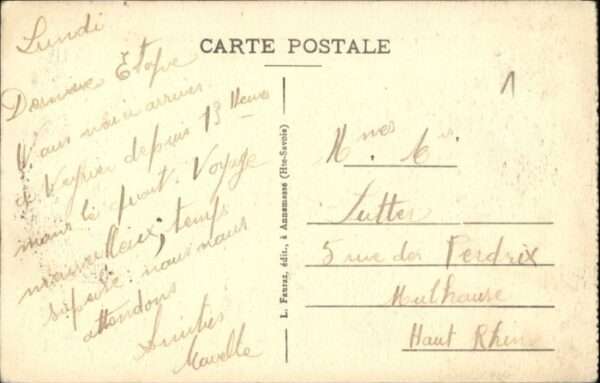 Lundi
Dernière Etape
Nous voici arrivés
à Veyrier depuis 13 Heures
moins le quart. Voyage
merveilleux, temps
superbe. nous nous
attendons
Amitiés
CARTE POSTALE
L. Fauraz, édit., à Annemasse (Hte-Savoie)
1
Sutter
5 rue des Perdrix
Mulhouse
Haut Rhin